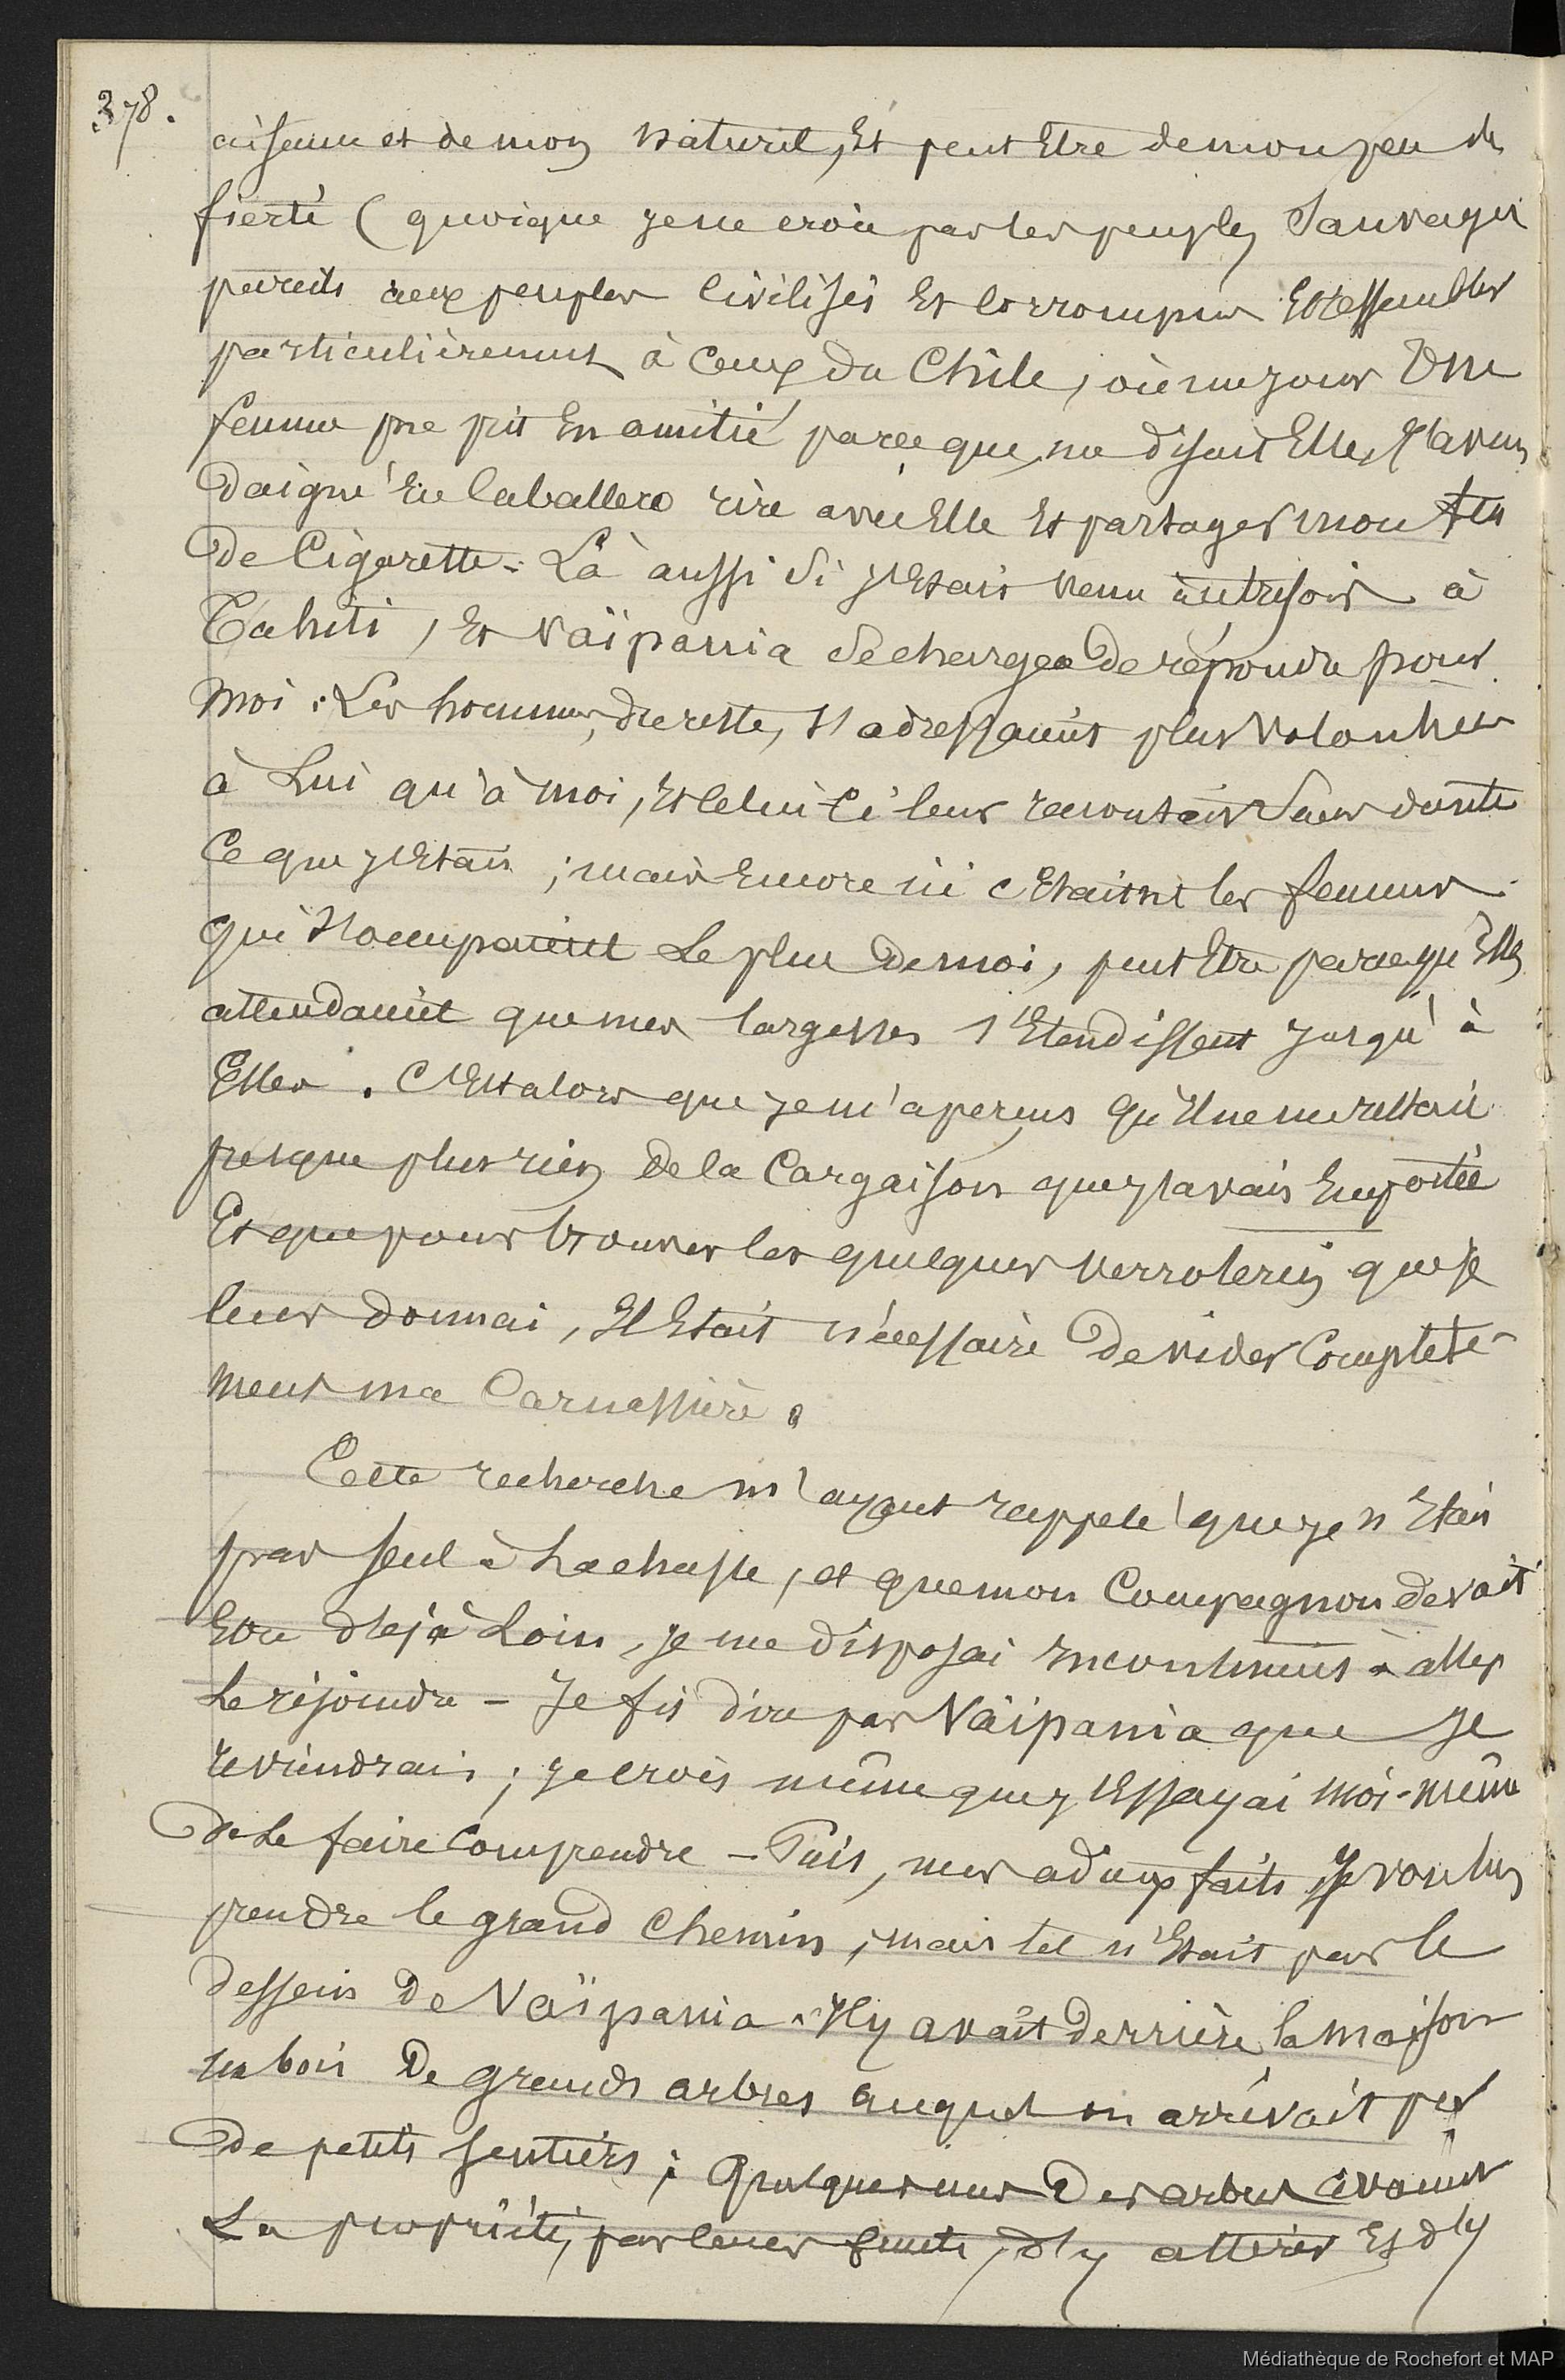 378.
aisance et de mon naturel, Et peut Etre de mon peu de
fierté (quoique je ne croie pas les peuples Sauvages
pareils aux peuples Civilisés Et Corrompus Et ressembler
particulièrement à Ceux du Chili, où un jour Une
femme me prit En amitié parce que, me disait Elle, j'avais
daigné En Caballero rire avec Elle Et partager mon feu
de Cigarette. Là aussi Si j'Etais venu autrefois à
Tahiti, Et Vaïpania Se chargea de répondre pour
moi : Les hommes, du reste, S'adressaient plus Volontiers
à Lui qu'à moi, Et Celui-Ci leur racontait Sans doute
Ce que j'Etais ; mais Encore ici c'Etaient les femmes
qui S'occupaient Le plus de moi, peut Etre parce qu'Elles
attendaient que mes largesses s'Etendissent jusqu'à
Elles. C'Est alors que je m'aperçus qu'Il ne me restait
presque plus rien de la Cargaison que j'avais Emportée
Et que pour trouver les quelques verroteries que je
leur donnai, Il Etait nécessaire de vider Complete-
ment ma Carnassière.
Cette recherche m'ayant rappelé que je n'Etais
pas seul à La chasse, et que mon Compagnon devait
Etre déjà Loin, je me disposai Incontinent à aller
Le rejoindre - Je fis dire par Vaïpania que je
reviendrais ; je crois même que j'Essayai moi-même
de Le faire Comprendre - Puis, mes adieux faits, Je voulus
prendre le grand Chemin, mais tel n'Etait pas le
dessein de Vaïpania. Il y avait derrière la maison
un bois de grands arbres auquel on arrivait par
de petits sentiers ; quelques uns des arbres avaient
La propriété, par leurs fruits, d'y attirer Et d'y
Médiathèque de Rochefort et MAP